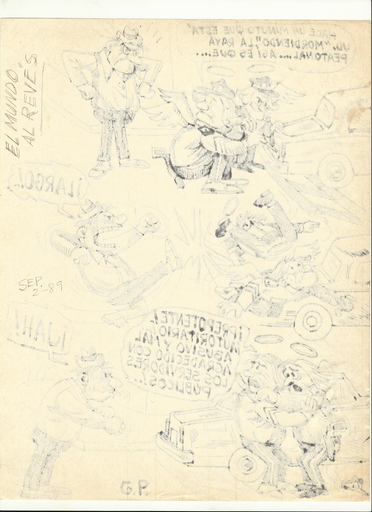 EL MUNDO
AL REVES
HACE UN MINUTO QUE ESTA
UD. "MORDIENDO" LA RAYA
PEATONAL... ASI ES QUE...
¡LARGO!
SEP.
2-89
¡PREPOTENTE,
AUTORITARIO,
ABUSIVO Y MAL
AGRADECIDO CON
LOS SERVIDORES
PUBLICOS!..
¡JAH!